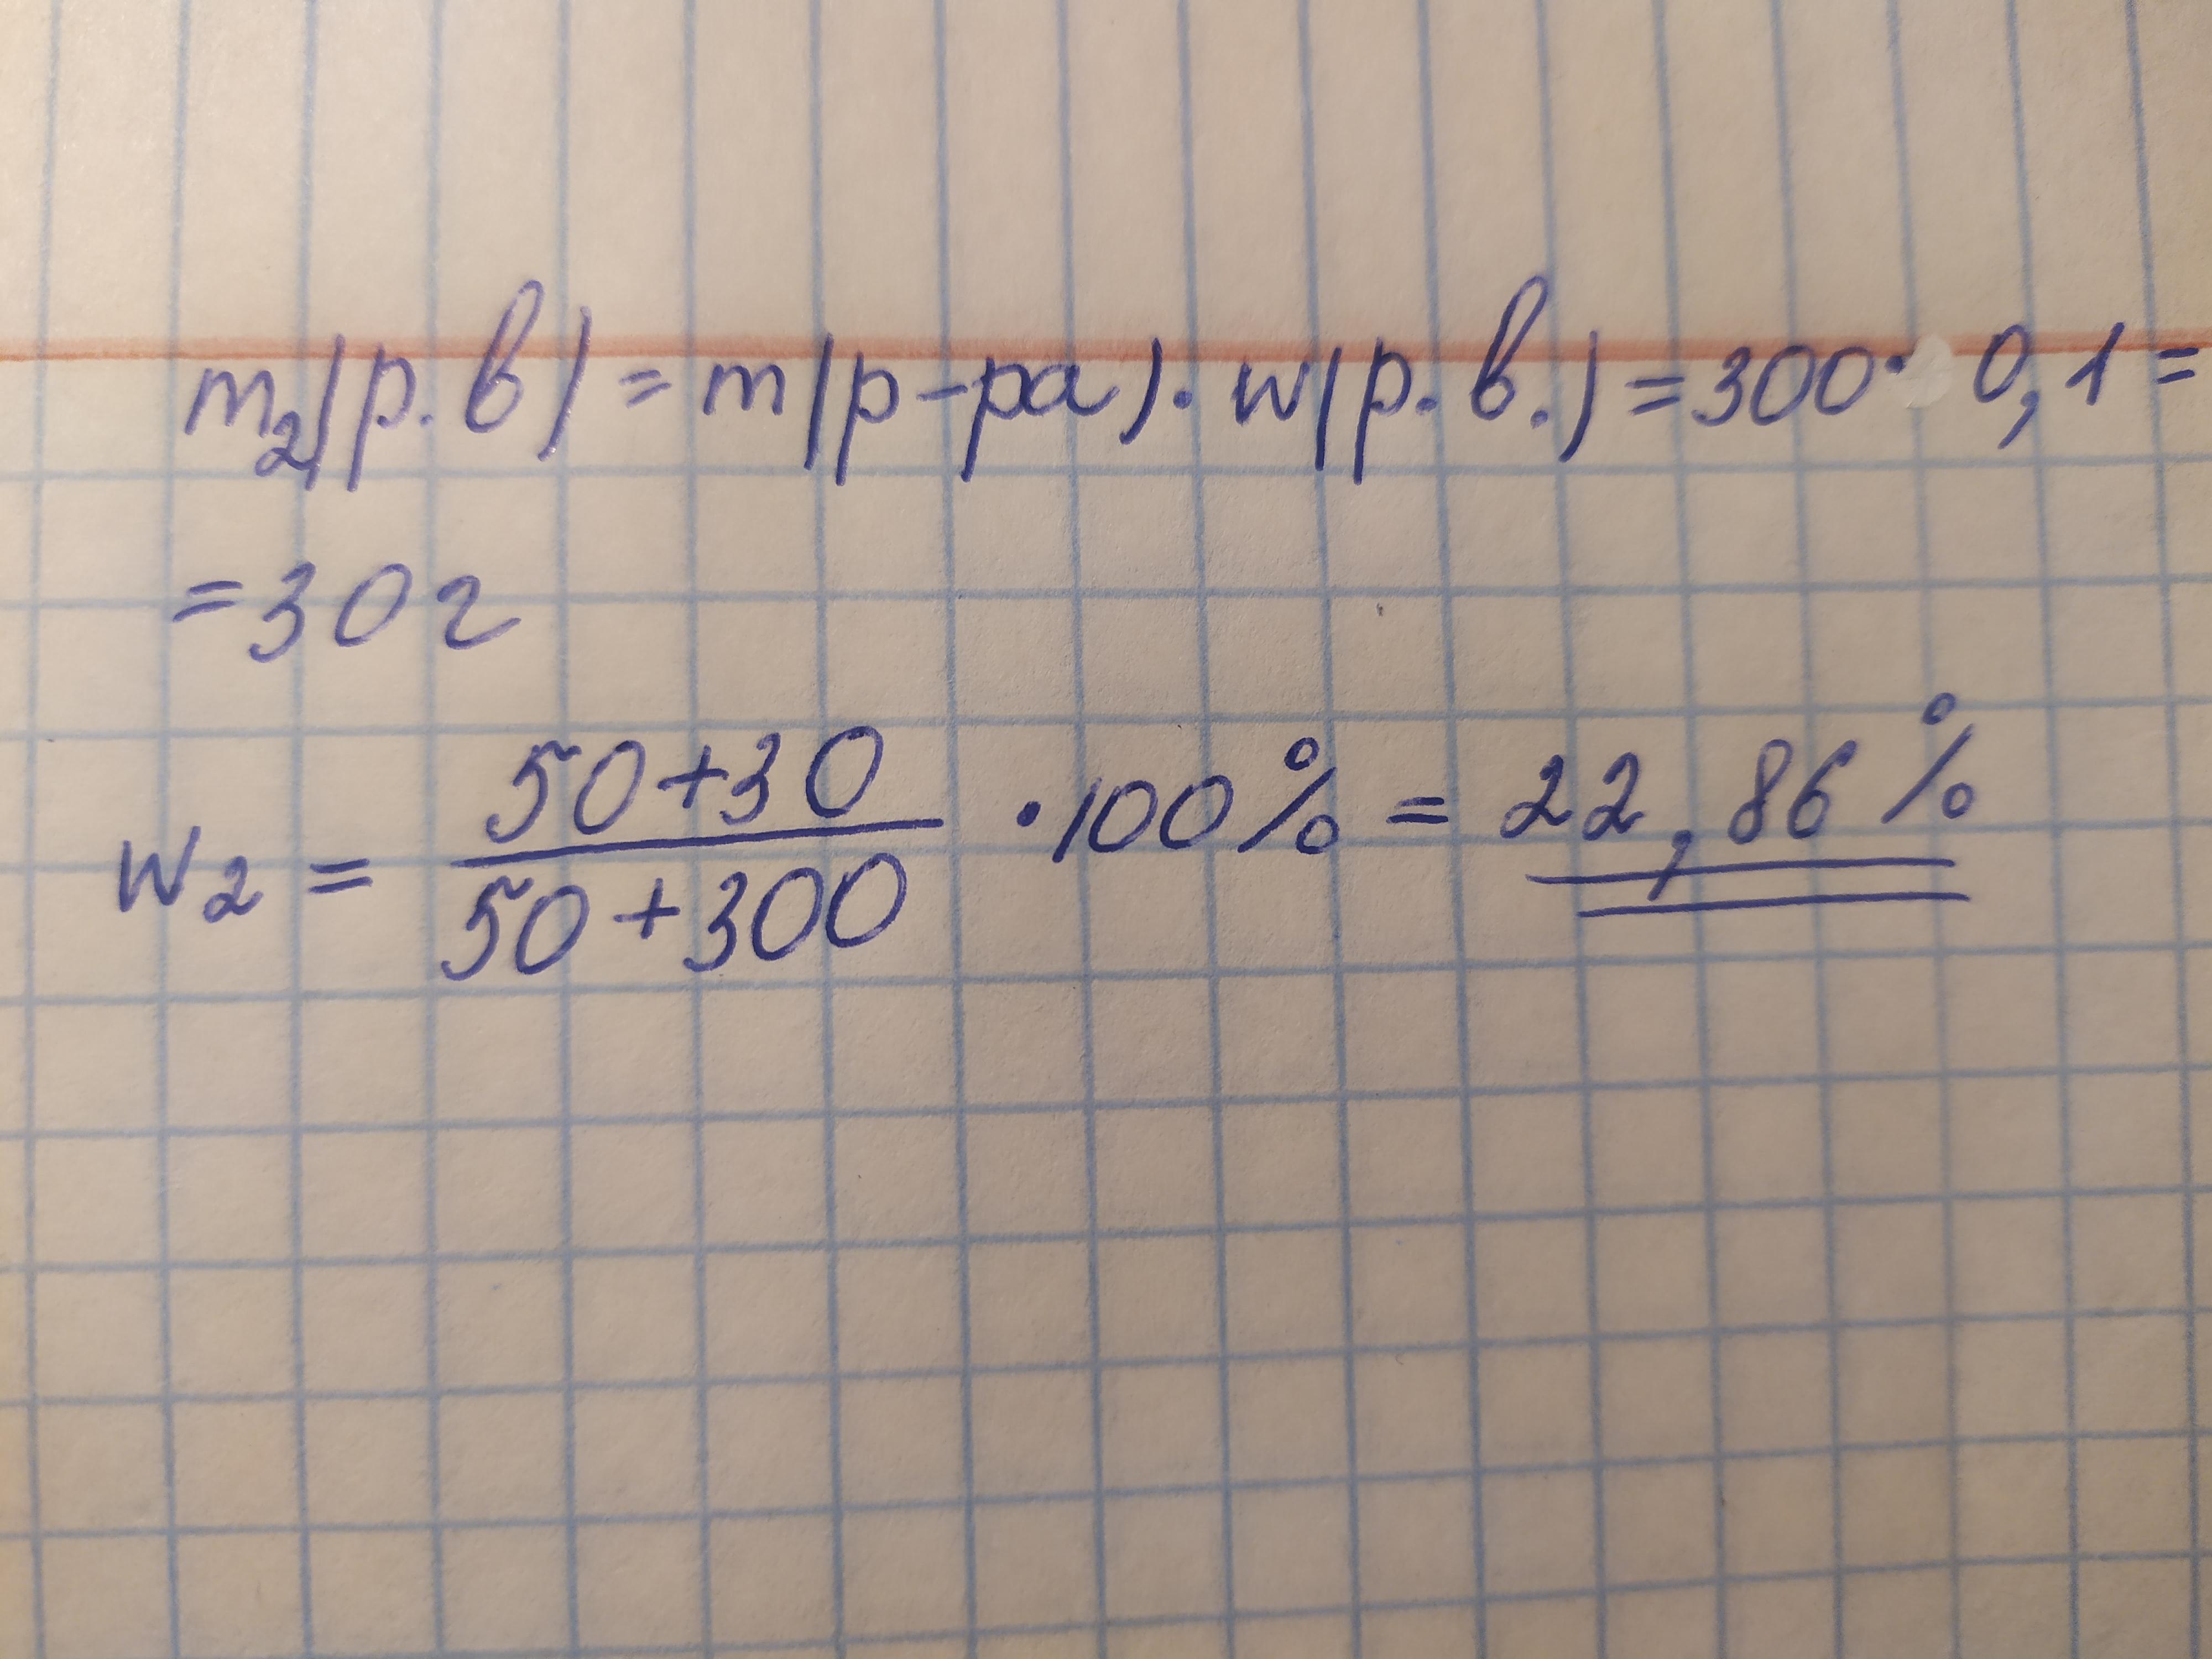 m₂(р.в) = m(р-ра) · w(р.в.) = 300 · 0,1 =
= 30 г
w₂ = (50+30)/(50+300) · 100% = 22,86 %